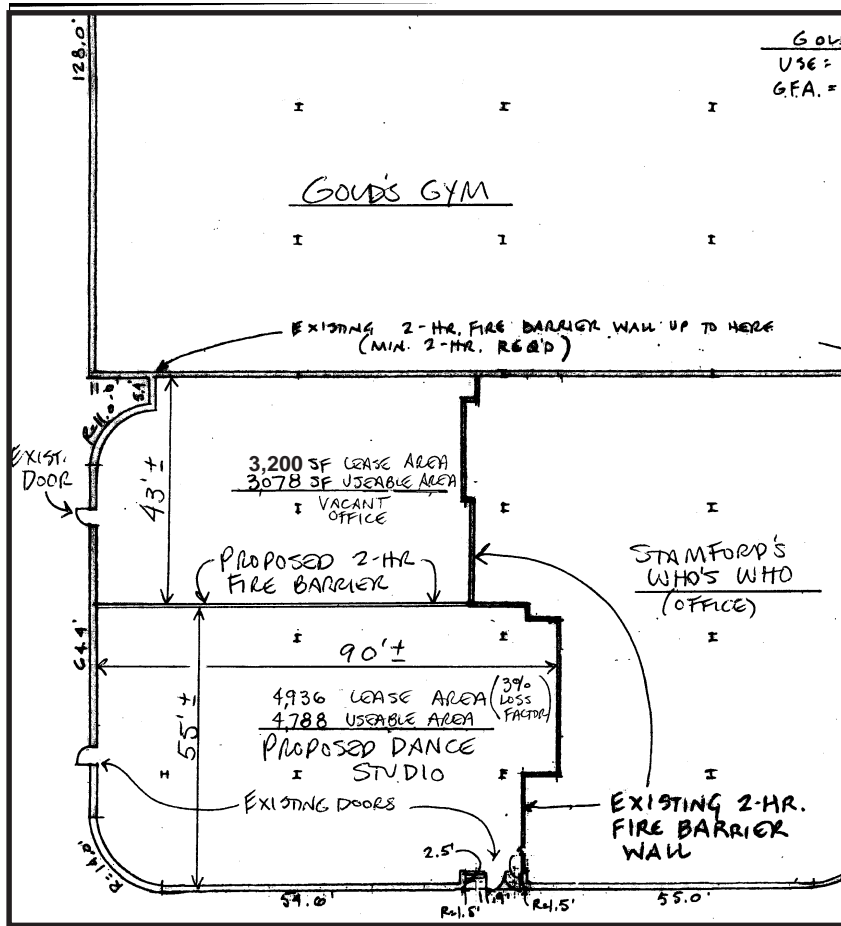 128.0'
USE =
G.F.A. =
GOLD'S GYM
EXISTING 2-HR. FIRE BARRIER WALL UP TO HERE
(MIN. 2-HR. REQ'D)
5.4'
EXIST.
DOOR
43'±
3,200 SF LEASE AREA
3078 SF USEABLE AREA
VACANT
OFFICE
PROPOSED 2-HR
FIRE BARRIER
STAMFORD'S
WHO'S WHO
(OFFICE)
64.4'
90'±
55'±
4,936 LEASE AREA (3%
LOSS
FACTOR)
4,788 USEABLE AREA
PROPOSED DANCE
STUDIO
EXISTING DOORS
EXISTING 2-HR.
FIRE BARRIER
WALL
R=14.0'
2.5'
54.0'
R=1.5'
R=1.5'
55.0'